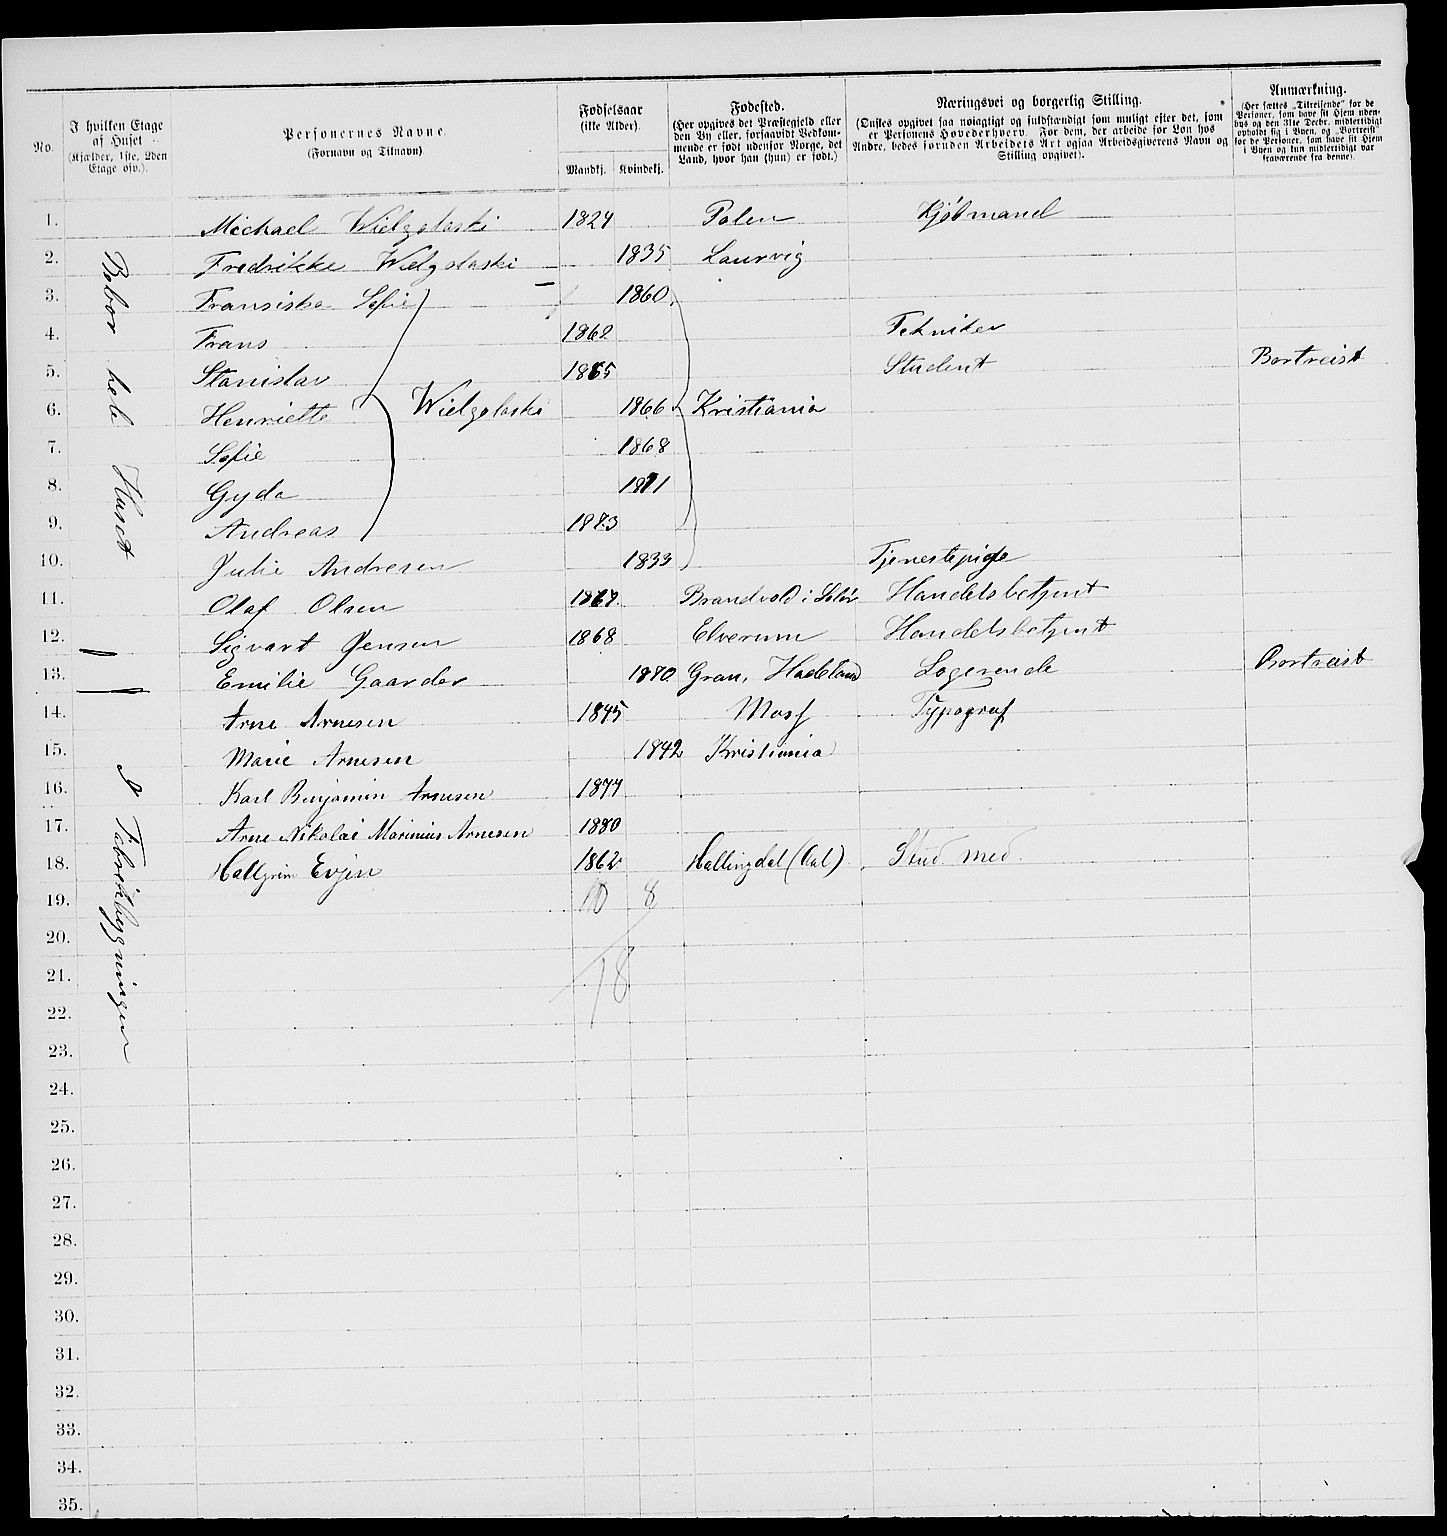 No.
I hvilken Etage af Huset (Kjælder, 1ste, 2den Etage osv.).
Personernes Navne. (Fornavn og Tilnavn)
Fødselsaar (ikke Alder).
Mandkj. Kvindekj.
Fødested. (Her opgives det Præstegjeld eller den By eller, forsaavidt Vedkommende er født udenfor Norge, det Land, hvor han (hun) er født.)
Næringsvei og borgerlig Stilling. (Ønskes opgivet saa nøiagtigt og fuldstændigt som muligt efter det, som er Personens Hovederhverv. For dem, der arbeide for Løn hos Andre, bedes foruden Arbeidets Art ogsaa Arbeidsgiverens Navn og Stilling opgivet).
Anmærkning. (Her sættes "Tilreisende" for de Personer, som have sit Hjem udenbys og den 31te Decbr. midlertidigt opholdt sig i Byen, og "Bortreist" for de Personer, som have sit Hjem i Byen og kun midlertidigt var fraværende fra denne).
1. Michael Wielgolaski 1824 Polen Kjøbmand
2. Fredrikke Wielgolaski 1835 Laurvig
3. Fransiska Sofie 1860
4. Frans 1862 Tekniker
5. Stanislav 1865 Student Bortreist
6. Henriette Wielgolaski 1866 Kristiania
7. Sofie 1868
8. Gyda 1871
9. Andreas 1873
10. Julie Andresen 1833 Tjenestepige
11. Olaf Olsen 1867 Brandvold i Solør Handelsbetjent
12. Sigvart Jensen 1868 Elverum Handelsbetjent
13. Emilie Gaarder 1870 Gran, Hadeland Logerende Bortreist
14. Arne Arnesen 1845 Moss Typograf
15. Marie Arnesen 1842 Kristiania
16. Karl Benjamin Arnesen 1877
17. Arne Nikolai Marinius Arnesen 1880
18. Hallgrim Evjen 1862 Hallingdal (Aal) Stud. med.
19. 10 8
20.
21. 18
22.
23.
24.
25.
26.
27.
28.
29.
30.
31.
32.
33.
34.
35.
Bebor hele Huset
Fabrikbygningen